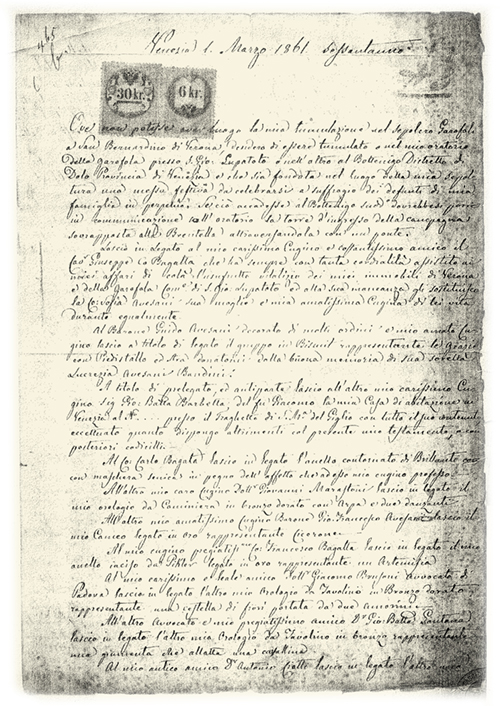 Venezia 1. Marzo 1861 sessantauno
30 kr.
6 kr.
Ove non potesse aver luogo la mia tumulazione nel sepolcro Garofolo
a San Bernardino di Verona, desidero di essere tumulato o nel mio oratorio
della garofola presso S. Gio. Lupatoto o nell'altro al Bottenigo Distretto di
Dolo Provincia di Venezia e che sia fondata nel luogo della mia sepol
tura una messa festiva da celebrarsi a suffragio dei defunti di mia
famiglia in perpetuo. Se ciò accadesse al Bottenigo si dovrebbe porre
in communicazione coll'oratorio la torre d'ingresso della campagna
sovrapposta alla Brentella attraversandola con un ponte.
Lascio in legato al mio carissimo Cugino e costantissimo amico il
Cav. Giuseppe Co. Bagatta che ha sempre con tanta cordialità assistito ai
miei affari di colà l'usufrutto e utilizio dei miei immobili di Verona
e della garofola Com.e di S. Gio. Lupatoto ed alla sua mancanza gli sostituisco
la Co. Sofia Avesani sua moglie e mia amatissima Cugina di lei vita
durante egualmente.
Al Barone Guido Avesani decorato di molti ordini e mio amato Cu
gino lascio a titolo di legato il gruppo in Biscuit rappresentante le Grazie
con Piedistallo ed Urna donatomi dalla buona memoria di sua sorella
Lucrezia Avesani Bandini.
A titolo di prelegato, ed antiparte lascio all'altro mio carissimo Cu
gino Sig. Gio. Batta Barbetta del fu Giacomo la mia Casa di abitazione in
Venezia al N. presso il Traghetto di S. M. del Giglio con tutto il suo contenuto
eccettuato quanto dispongo altrimenti col presente mio testamento, o con
posteriori codicilli.
Al Co. Carlo Bagatta lascio in legato l'anello contornato di Brillanti con
con maschera scenica in pegno dell'affetto che ad esso mio cugino professo.
All'altro mio caro Cugino Dott. Giovanni Marastoni lascio in legato il
mio orologio da Caminiera in bronzo dorato con Arpa e due
All'altro mio amatissimo Cugino Barone Gio. Francesco Avesani lascio il
mio Cameo legato in oro rappresentante Cicerone.
Al mio cugino pregiatiss.o Co. Francesco Bagatta lascio in legato il mio
anello inciso da Pikler legato in oro rappresentante un Artemisia
Al mio carissimo e leale amico Dott. Giacomo Brusoni Avvocato di
Padova lascio in legato l'altro mio Orologio da Tavolino in Bronzo dorato
rappresentante una cestella di fiori portata da due amorini.
All'altro Avvocato e mio pregiatissimo amico D.r Gio. Batta
lascio in legato l'altro mio Orologio da Tavolino in bronzo rappresentante
una giovinetta che allatta una
Al mio antico amico D.r Antonio lascio in legato l'altro mio